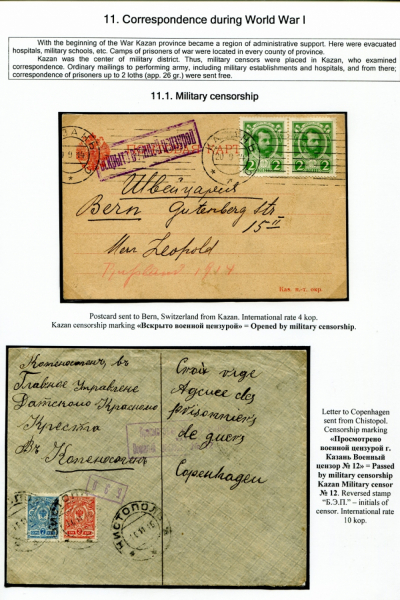 11. Correspondence during World War I
With the beginning of the War Kazan province became a region of administrative support. Here were evacuated
hospitals, military schools, etc. Camps of prisoners of war were located in every county of province.
Kazan was the center of military district. Thus, military censors were placed in Kazan, who examined
correspondence. Ordinary mailings to performing army, including military establishments and hospitals, and from there;
correspondence of prisoners up to 2 loths (app. 26 gr.) were sent free.
11.1. Military censorship
КАЗАНЬ
ВСКРЫТО ВОЕННОЙ ЦЕНЗУРОЙ
2 2
Швейцария
Bern Gutenberg Str
15
Herr Leopold
Postcard sent to Bern, Switzerland from Kazan. International rate 4 kop.
Kazan censorship marking «Вскрыто военной цензурой» = Opened by military censorship.
Копенгаген, въ
Главное Управление
Датского Красного
Креста
Въ Копенгаген
Croix
Agucee des
prisonniers
de
Copenhagen
ЧИСТОПОЛЬ
Letter to Copenhagen
sent from Chistopol.
Censorship marking
«Просмотрено
военной цензурой г.
Казань Военный
цензор № 12» = Passed
by military censorship
Kazan Military censor
№ 12. Reversed stamp
"Б.Э.П." – initials of
censor. International rate
10 kop.